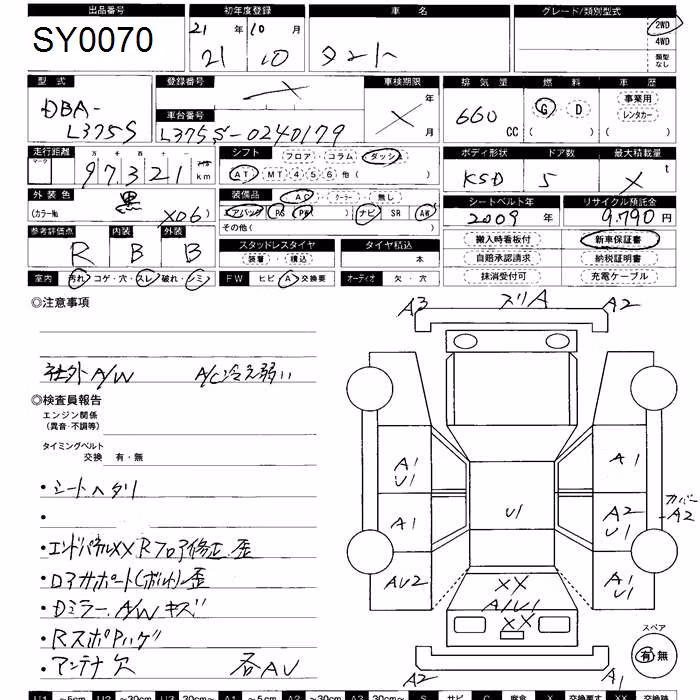 出品番号 初年度登録 車名 グレード/類別型式
SY0070 21年 10月 2WD
21 10 タント 4WD
類型なし
型式 登録番号 車検期限 排気量 燃料 車歴
DBA- 年 G D 事業用
車台番号 660 レンタカー
L375S L375S-0240179 X 月 CC ( ) ( )
走行距離 シフト フロア コラム ダッシュ ボディ形状 ドア数 最大積載量
マーク 97321 km AT MT 4 5 6 他 ( ) K5D 5 X t
外装色 黒 装備品 AC クーラー 無し シートベルト年 リサイクル預託金
(カラーNo. X06) エアバッグ PS PW ナビ SR AW 2009 9,790円
参考評価点 内装 外装 その他 ( ) 搬入時看板付 新車保証書
R B B スタッドレスタイヤ タイヤ積込 自賠承認請求 納税証明書
装着 積込 本 抹消受付可 充電ケーブル
室内 汚れ・コゲ・穴・スレ・破れ・シミ FW ヒビ A 交換要 オーディオ 欠・穴
◎注意事項
社外A/W A/C冷え弱い
◎検査員報告
エンジン関係
(異音・不調等)
タイミングベルト
交換 有・無
・シートヘタリ
・
・エンドパネルXX Rフロア修正 歪
・ロアサポート(ボルト)歪
・Dミラー.A/Wキズ
・RスポPハゲ
・アンテナ欠 各AU
A3 スリA A2
A1
U1
A1
AU2
U1
A1
A2
U1
A1
U1
カバー
A2
XX
A1U1
XX
スペア
有 無
A2 A1
U1 ~5cm U2 ~30cm U3 30cm~ A1 ~5cm A2 ~30cm A3 30cm~ S サビ C 腐食 X 交換要す XX 交換跡